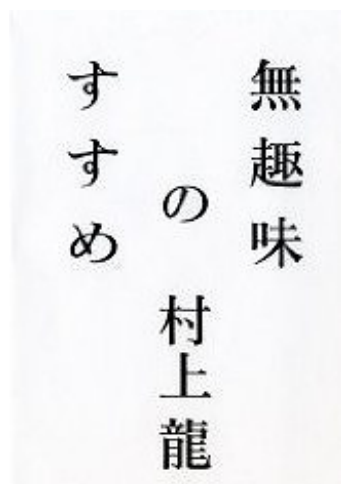 無趣味
の
すすめ
村上龍